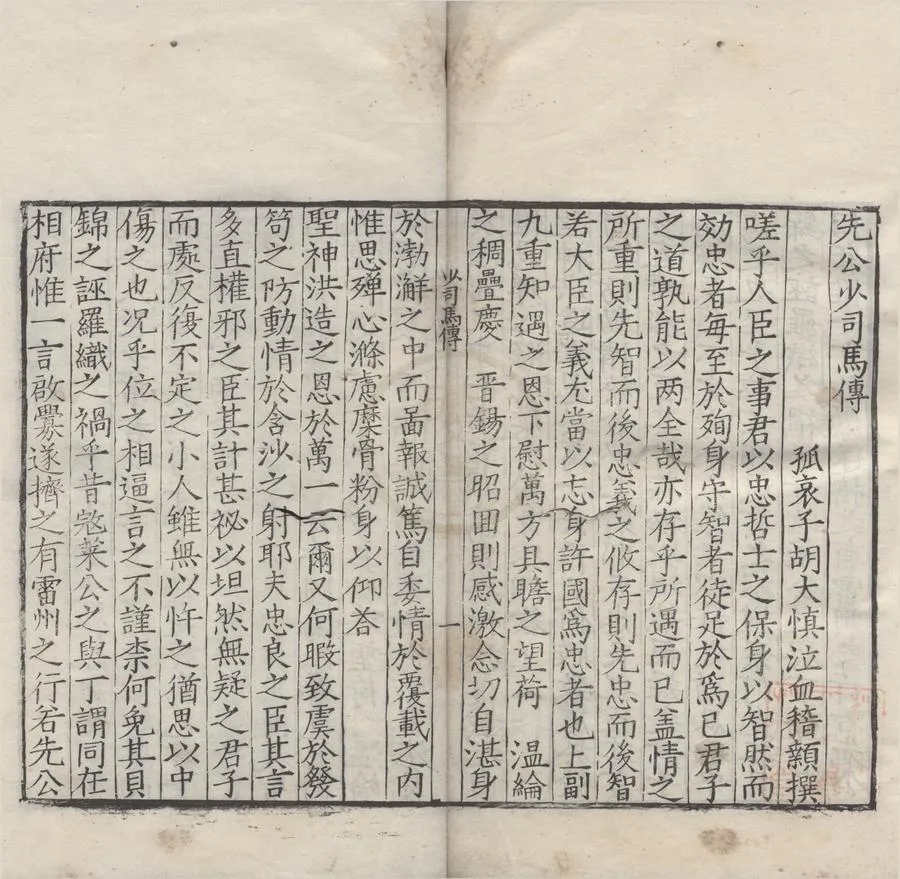 先公少司馬傳
孤哀子胡大慎泣血稽顙撰
嗟乎人臣之事君以忠哲士之保身以智然而
効忠者每至於殉身守智者徒足於爲已君子
之道孰能以两全哉亦存乎所遇而已盖情之
所重則先智而後忠義之攸存則先忠而後智
若大臣之義尤當以志身許國爲忠者也上副
九重知遇之恩下慰萬方具瞻之望荷 温綸
之稠疊慶 晋錫之昭回則感激念切自湛身
少司馬傳
一
於渤澥之中而啚報誠篤自委情於覆載之内
惟思殫心滌慮糜骨粉身以仰荅
聖神洪造之恩於萬一云爾又何暇致虞於發
笱之防動情於含沙之射耶夫忠良之臣其言
多直權邪之臣其計甚祕以坦然無疑之君子
而處反復不定之小人雖無以忤之猶思以中
傷之也况乎位之相逼言之不謹柰何免其貝
錦之誣羅織之禍乎昔宼莱公之與丁謂同在
相府惟一言啟釁遂擠之有雷州之行若先公